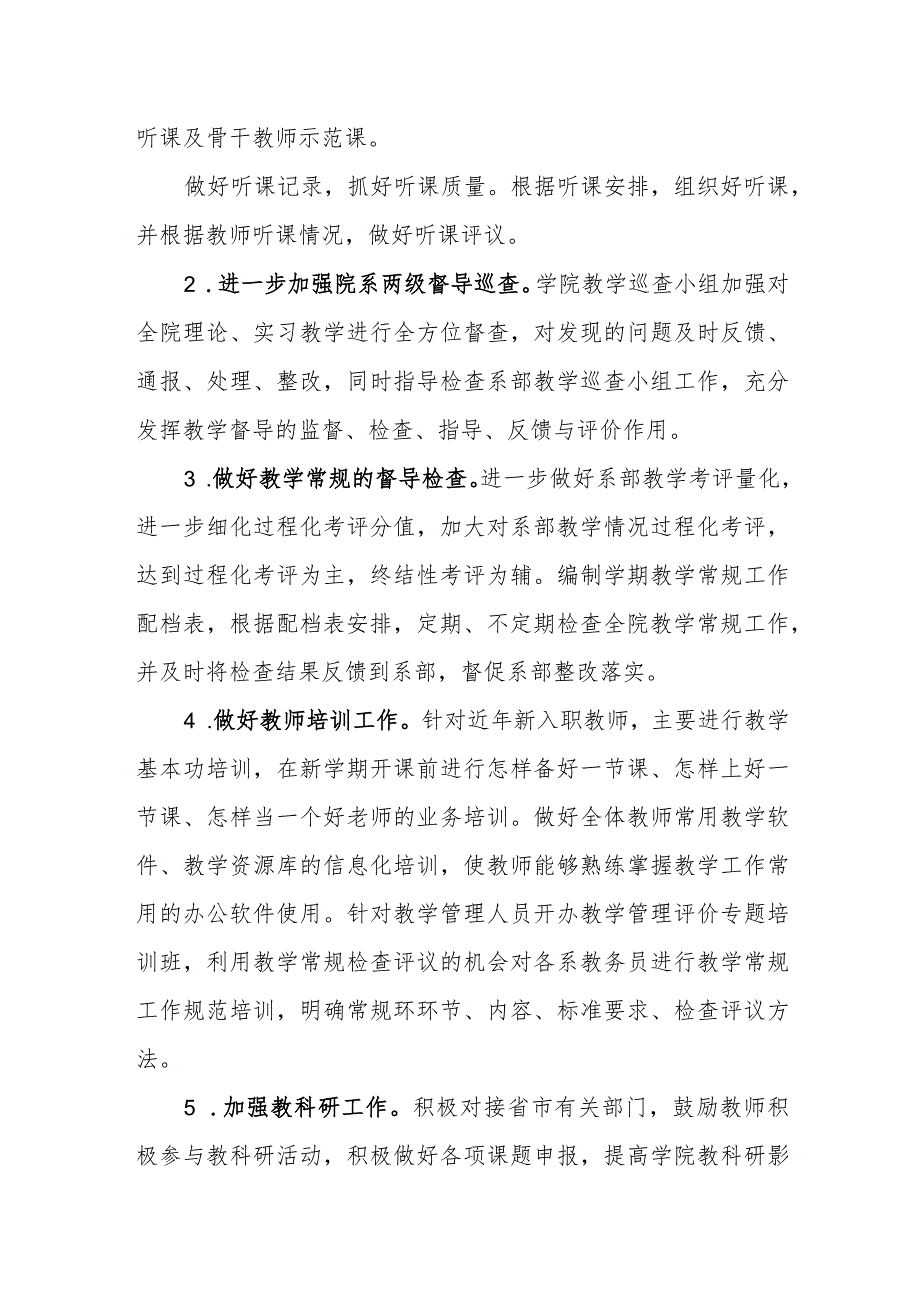 听课及骨干教师示范课。
做好听课记录，抓好听课质量。根据听课安排，组织好听课，
并根据教师听课情况，做好听课评议。
2 .进一步加强院系两级督导巡查。学院教学巡查小组加强对
全院理论、实习教学进行全方位督查，对发现的问题及时反馈、
通报、处理、整改，同时指导检查系部教学巡查小组工作，充分
发挥教学督导的监督、检查、指导、反馈与评价作用。
3 .做好教学常规的督导检查。进一步做好系部教学考评量化，
进一步细化过程化考评分值，加大对系部教学情况过程化考评，
达到过程化考评为主，终结性考评为辅。编制学期教学常规工作
配档表，根据配档表安排，定期、不定期检查全院教学常规工作，
并及时将检查结果反馈到系部，督促系部整改落实。
4 .做好教师培训工作。针对近年新入职教师，主要进行教学
基本功培训，在新学期开课前进行怎样备好一节课、怎样上好一
节课、怎样当一个好老师的业务培训。做好全体教师常用教学软
件、教学资源库的信息化培训，使教师能够熟练掌握教学工作常
用的办公软件使用。针对教学管理人员开办教学管理评价专题培
训班，利用教学常规检查评议的机会对各系教务员进行教学常规
工作规范培训，明确常规环环节、内容、标准要求、检查评议方
法。
5 .加强教科研工作。积极对接省市有关部门，鼓励教师积
极参与教科研活动，积极做好各项课题申报，提高学院教科研影